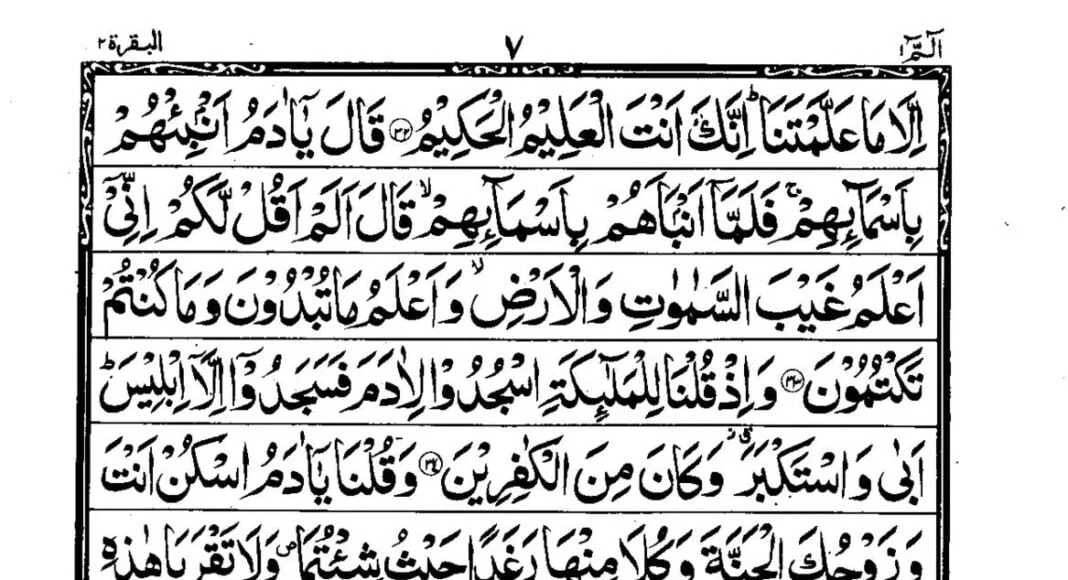 الٓمّٓ ١ ٧ البقرة ٢
اِلَّا مَا عَلَّمْتَنَا ؕ اِنَّكَ اَنْتَ الْعَلِیْمُ الْحَكِیْمُ ﴿۳۲﴾ قَالَ یٰۤاٰدَمُ اَنْۢبِئْهُمْ
بِاَسْمَآئِهِمْ ۚ فَلَمَّاۤ اَنْۢبَاَهُمْ بِاَسْمَآئِهِمْ ۙ قَالَ اَلَمْ اَقُلْ لَّكُمْ اِنِّیْۤ
اَعْلَمُ غَیْبَ السَّمٰوٰتِ وَالْاَرْضِ ۙ وَاَعْلَمُ مَا تُبْدُوْنَ وَمَا كُنْتُمْ
تَكْتُمُوْنَ ﴿۳۳﴾ وَاِذْ قُلْنَا لِلْمَلٰٓئِكَةِ اسْجُدُوْا لِاٰدَمَ فَسَجَدُوْۤا اِلَّاۤ اِبْلِیْسَ ؕ
اَبٰی وَاسْتَكْبَرَ ۫ۗ وَكَانَ مِنَ الْكٰفِرِیْنَ ﴿۳۴﴾ وَقُلْنَا یٰۤاٰدَمُ اسْكُنْ اَنْتَ
وَزَوْجُكَ الْجَنَّةَ وَكُلَا مِنْهَا رَغَدًا حَیْثُ شِئْتُمَا ۪ وَلَا تَقْرَبَا هٰذِهِ